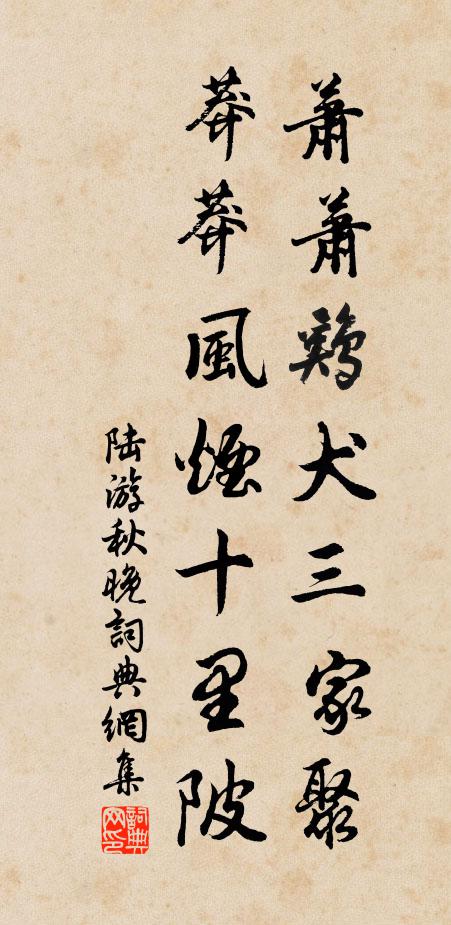 蕭蕭鷄犬三家聚
莽莽風煙十里陂
陆游秋晚詞典網集
詞典网印